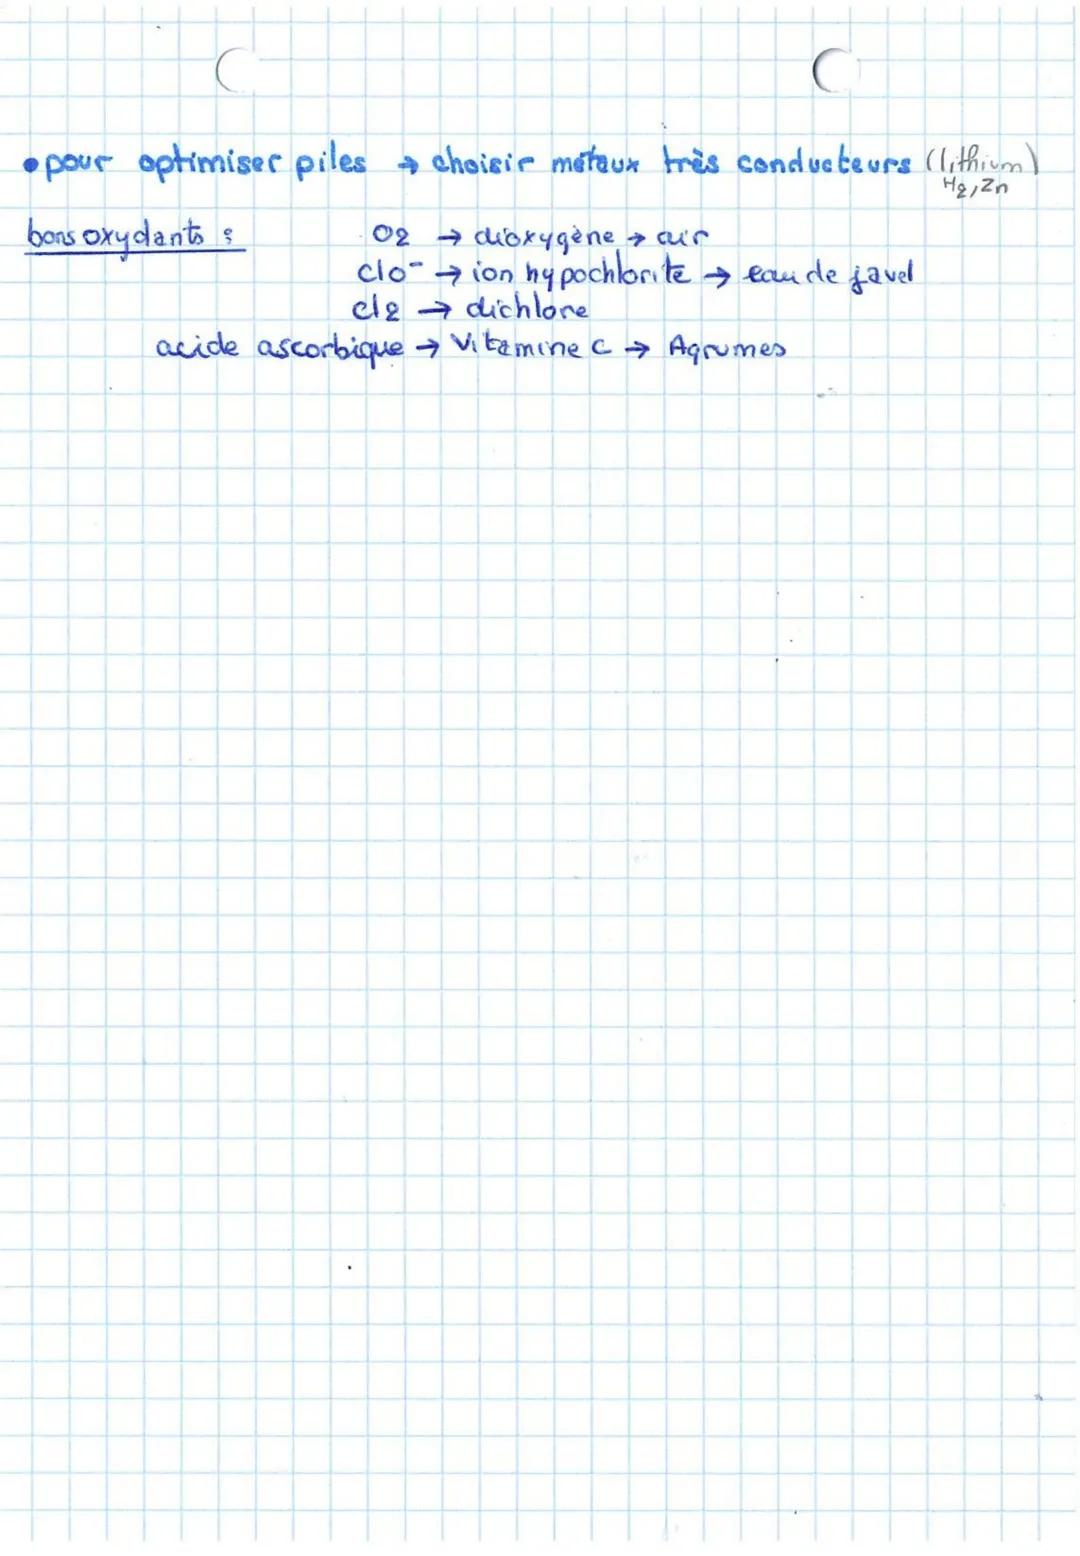 • pour optimiser piles → choisir métaux très conducteurs (lithium)
H2, Zn
bons oxydants :
O2 → dioxygène → air
ClO⁻ → ion hypochlorite → eau de javel
Cl2 → dichlore
acide ascorbique → Vitamine C → Agrumes